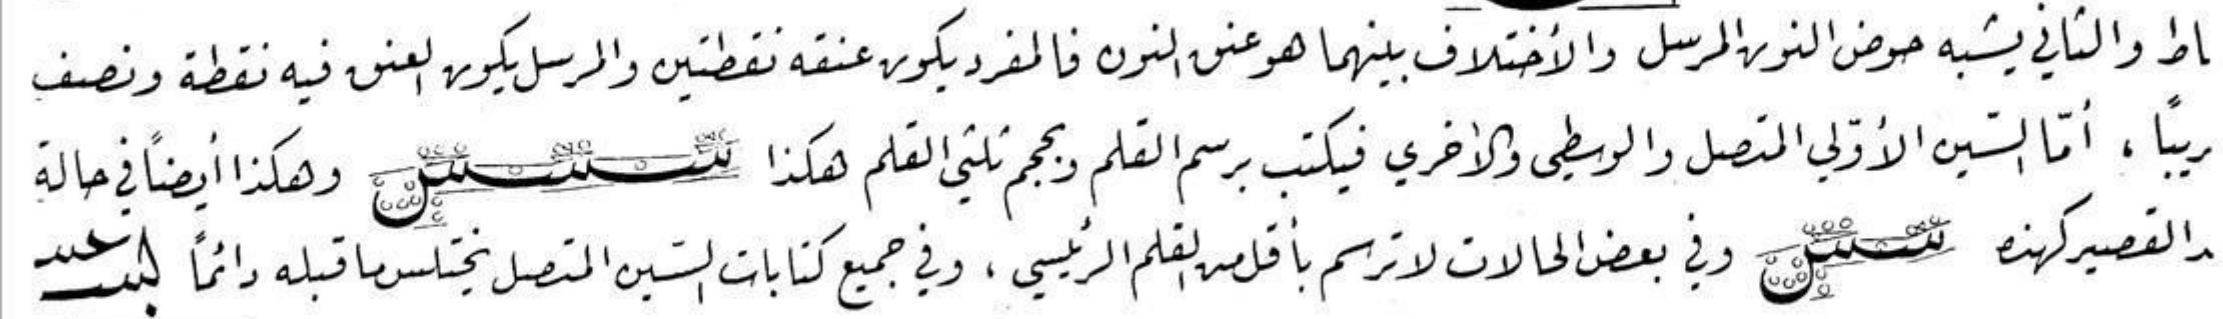 ـاط والثاني يشبه حوض النون المرسل والأختلاف بينهما هو عنق النون فالمفرد يكون عنقه نقطتين والمرسل يكون العنق فيه نقطة ونصف
ـريبًا ، أمّا السّين الأوّلي المتصل والوسطى والأخرى فيكتب برسم القلم وبحجم ثلثي القلم هكذا وهكذا أيضاً في حالة
ـد القصير كهذه وفي بعض الحالات لا ترسم بأقل من القلم الرئيسي ، وفي جميع كتابات السّين المتصل يختلس ما قبله دائماً